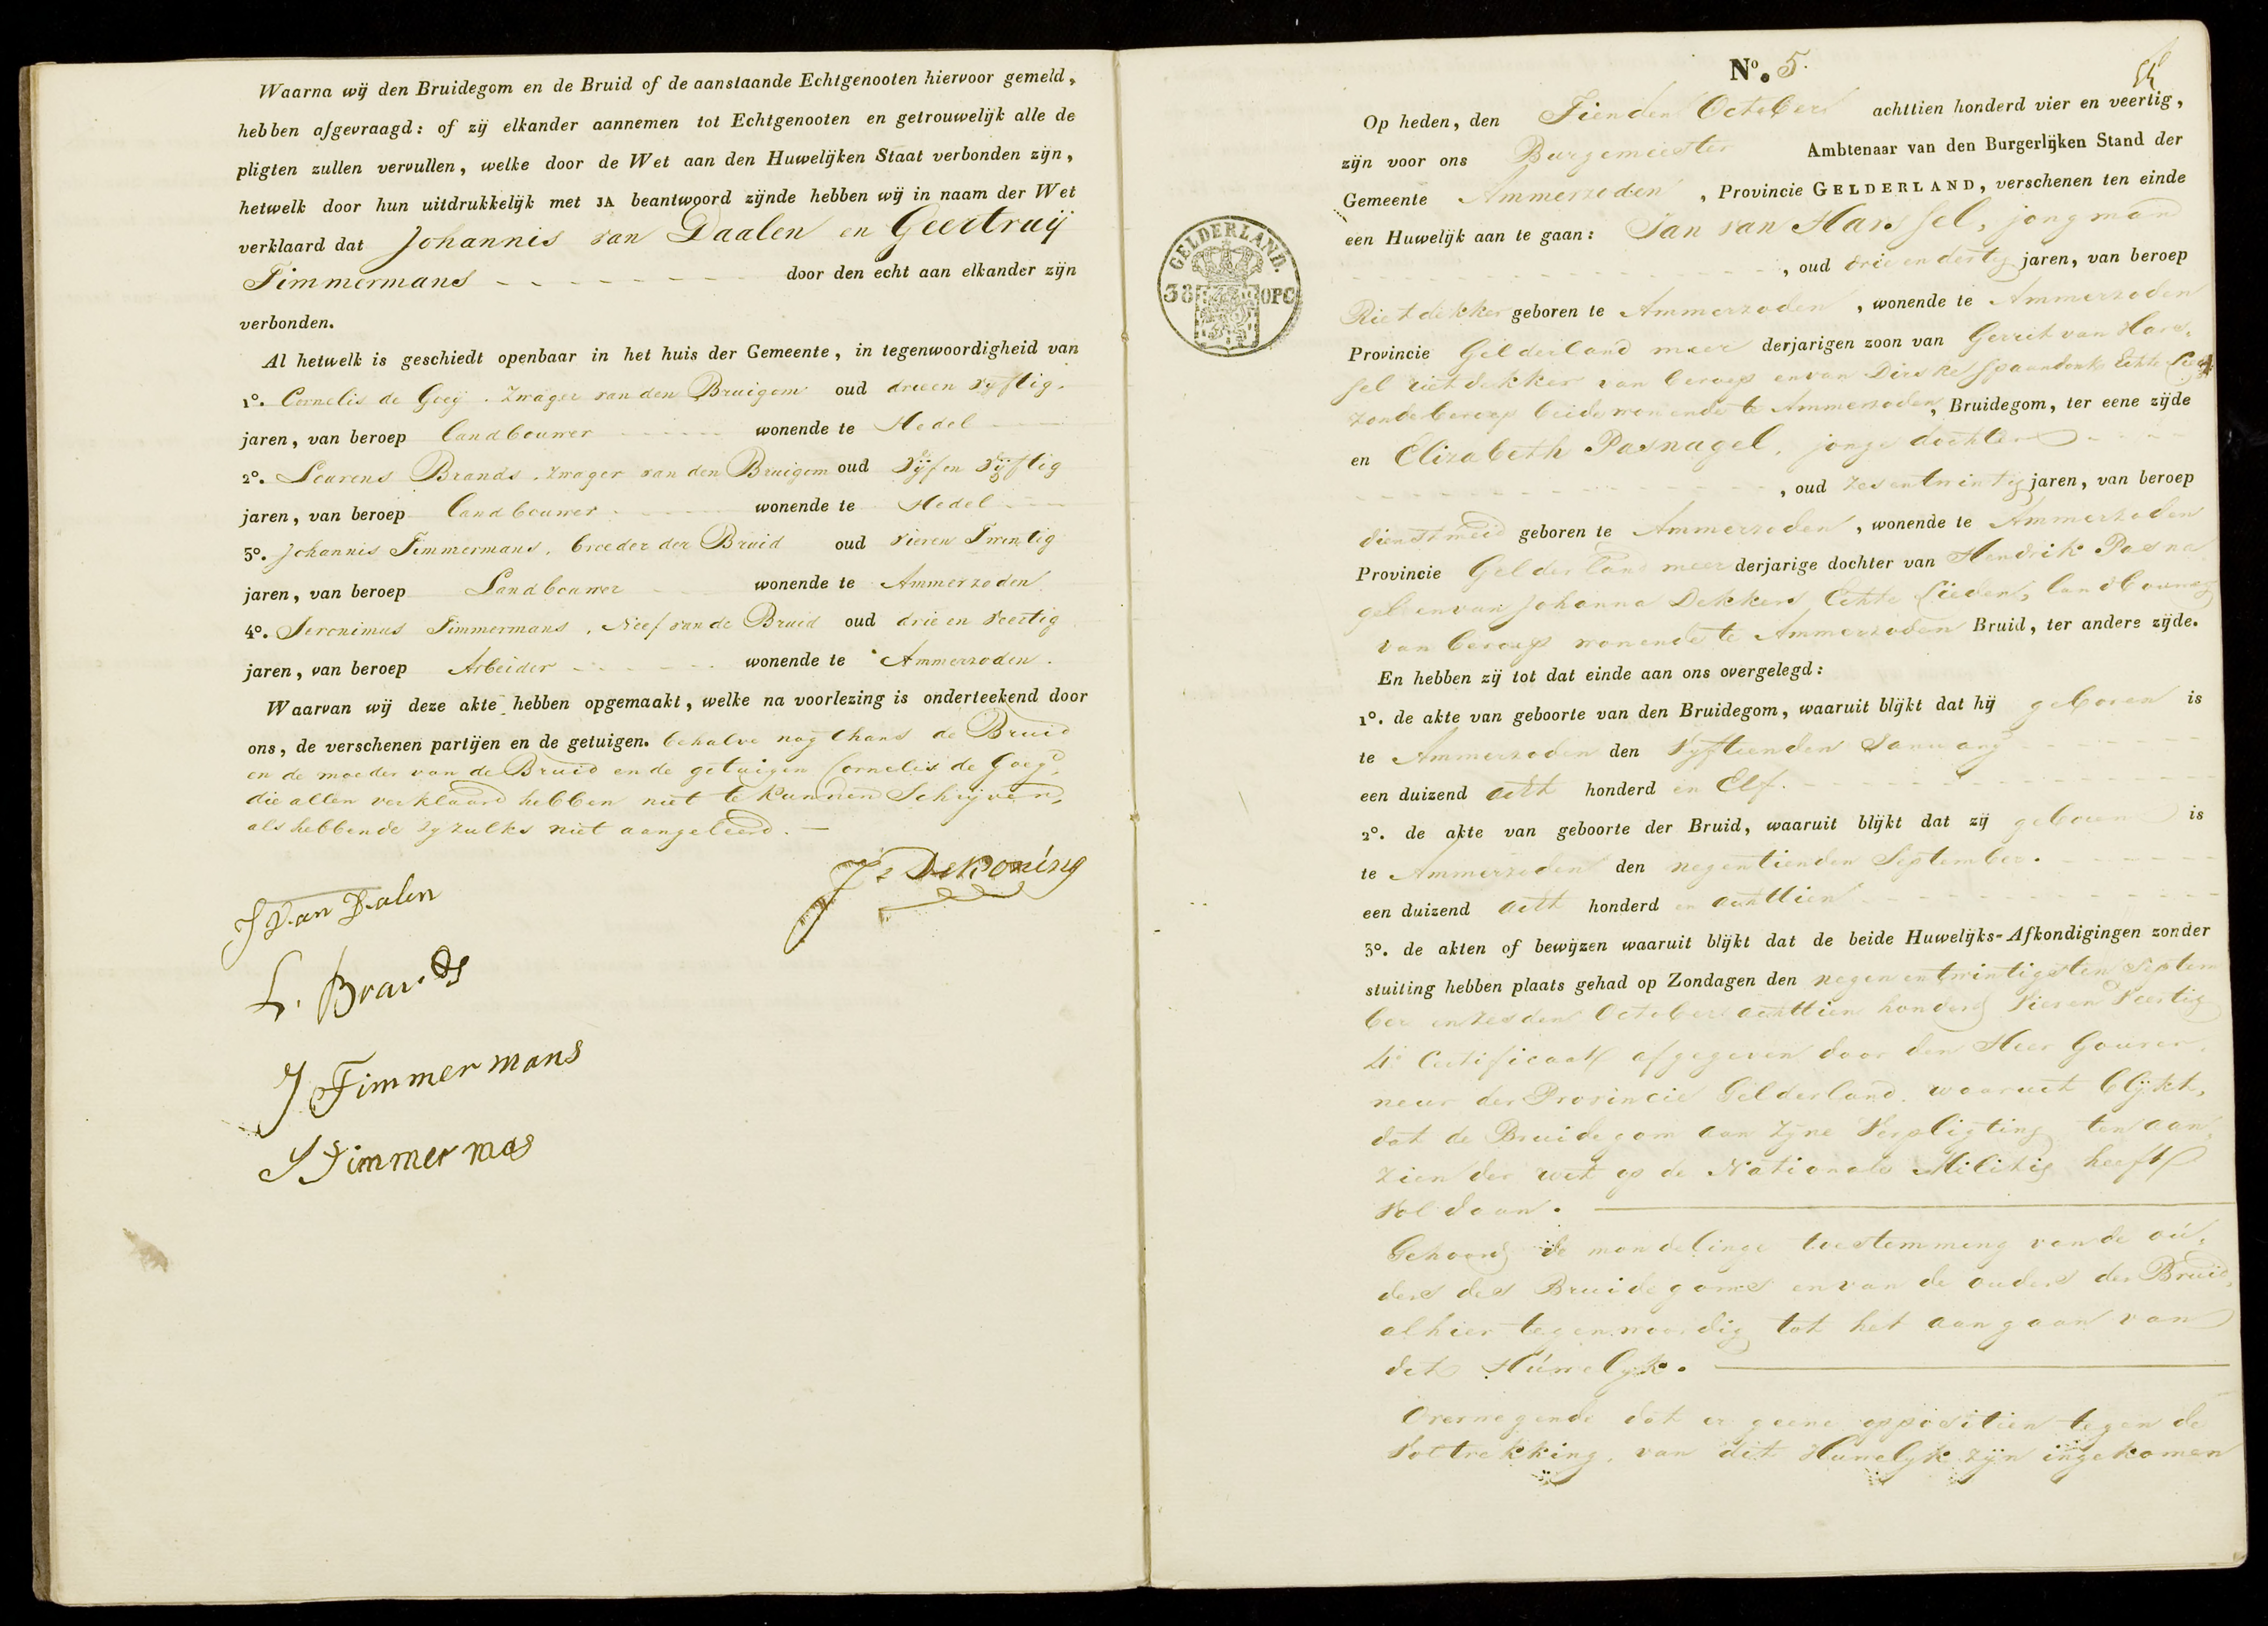 Waarna wij den Bruidegom en de Bruid of de aanstaande Echtgenooten hiervoor gemeld,
hebben afgevraagd: of zij elkander aannemen tot Echtgenooten en getrouwelijk alle de
pligten zullen vervullen, welke door de Wet aan den Huwelijken Staat verbonden zijn,
hetwelk door hun uitdrukkelijk met JA beantwoord zijnde hebben wij in naam der Wet
verklaard dat Johannis van Daalen en Geertruij
Timmermans door den echt aan elkander zijn
verbonden.
Al hetwelk is geschiedt openbaar in het huis der Gemeente, in tegenwoordigheid van
1º. Cornelis de Goeij. Zwager van den Bruigom oud drie en vyftig
jaren, van beroep landbouwer wonende te Hedel
2º. Lourens Brands. zwager van den Bruigom oud vyf en vyftig
jaren, van beroep landbouwer wonende te Hedel
3º. Johannis Timmermans, broeder der Bruid oud vier en Twintig
jaren, van beroep Landbouwer wonende te Ammerzoden
4º. Jeronimus Timmermans, Neef van de Bruid oud drie en veertig
jaren, van beroep Arbeider wonende te Ammerzoden.
Waarvan wij deze akte hebben opgemaakt, welke na voorlezing is onderteekend door
ons, de verschenen partijen en de getuigen. behalve nogthans de Bruid
en de moeder van de Bruid en de getuigen Cornelis de Goeij,
die allen verklaard hebben niet te kunnen Schryven,
als hebbende zy zulks niet aangeleerd.
Js DeKoning
J Van Dalen
L. Brands
J Timmermans
J Timmermas
Nº. 5.
Op heden, den Tienden October achttien honderd vier en veertig,
zijn voor ons Burgemeester Ambtenaar van den Burgerlijken Stand der
Gemeente Ammerzoden, Provincie GELDERLAND, verschenen ten einde
een Huwelijk aan te gaan: Jan van Harssel, jongman
, oud drie en dertig jaren, van beroep
Rietdekker geboren te Ammerzoden, wonende te Ammerzoden
Provincie Gelderland meer derjarigen zoon van Gerrit van Hars-
sel rietdekker van beroep en van Dirske Spaandonk Echte
zonder beroep beide wonende te Ammerzoden, Bruidegom, ter eene zijde
en Elizabeth Pasnagel, jonge dochter
, oud zes en twintig jaren, van beroep
dienstmeid geboren te Ammerzoden, wonende te Ammerzoden
Provincie Gelderland meer derjarige dochter van Hendrik Pasna
gel en van Johanna Dekkers, Echte Lieden, landbouwers
van beroep wonende te Ammerzoden Bruid, ter andere zijde.
En hebben zij tot dat einde aan ons overgelegd:
1º. de akte van geboorte van den Bruidegom, waaruit blijkt dat hij geboren is
te Ammerzoden den Vyftienden Januarij
een duizend acht honderd en Elf.
2º. de akte van geboorte der Bruid, waaruit blijkt dat zij geboren is
te Ammerzoden den negentienden September.
een duizend acht honderd en achttien
3º. de akten of bewijzen waaruit blijkt dat de beide Huwelijks-Afkondigingen zonder
stuiting hebben plaats gehad op Zondagen den negen en twintigsten Septem
ber en zesden October achttien honderd Vier en Veertig
4º Certificaat afgegeven door den Heer Gouver-
neur der Provincie Gelderland. waaruit blykt,
dat de Bruidegom aan zyne Verpligting ten aan-
zien der wet op de Nationale Militie heeft
Voldaan.
Gehoord de mondelinge toestemming van de ou-
ders des Bruidegoms en van de ouders der Bruid,
alhier tegenwoordig tot het aangaan van
dit Huwelyk.
Overwegende dat er geene oppositien tegen de
Voltrekking, van dit Huwelyk zyn ingekomen
GELDERLAND.
38
OPC